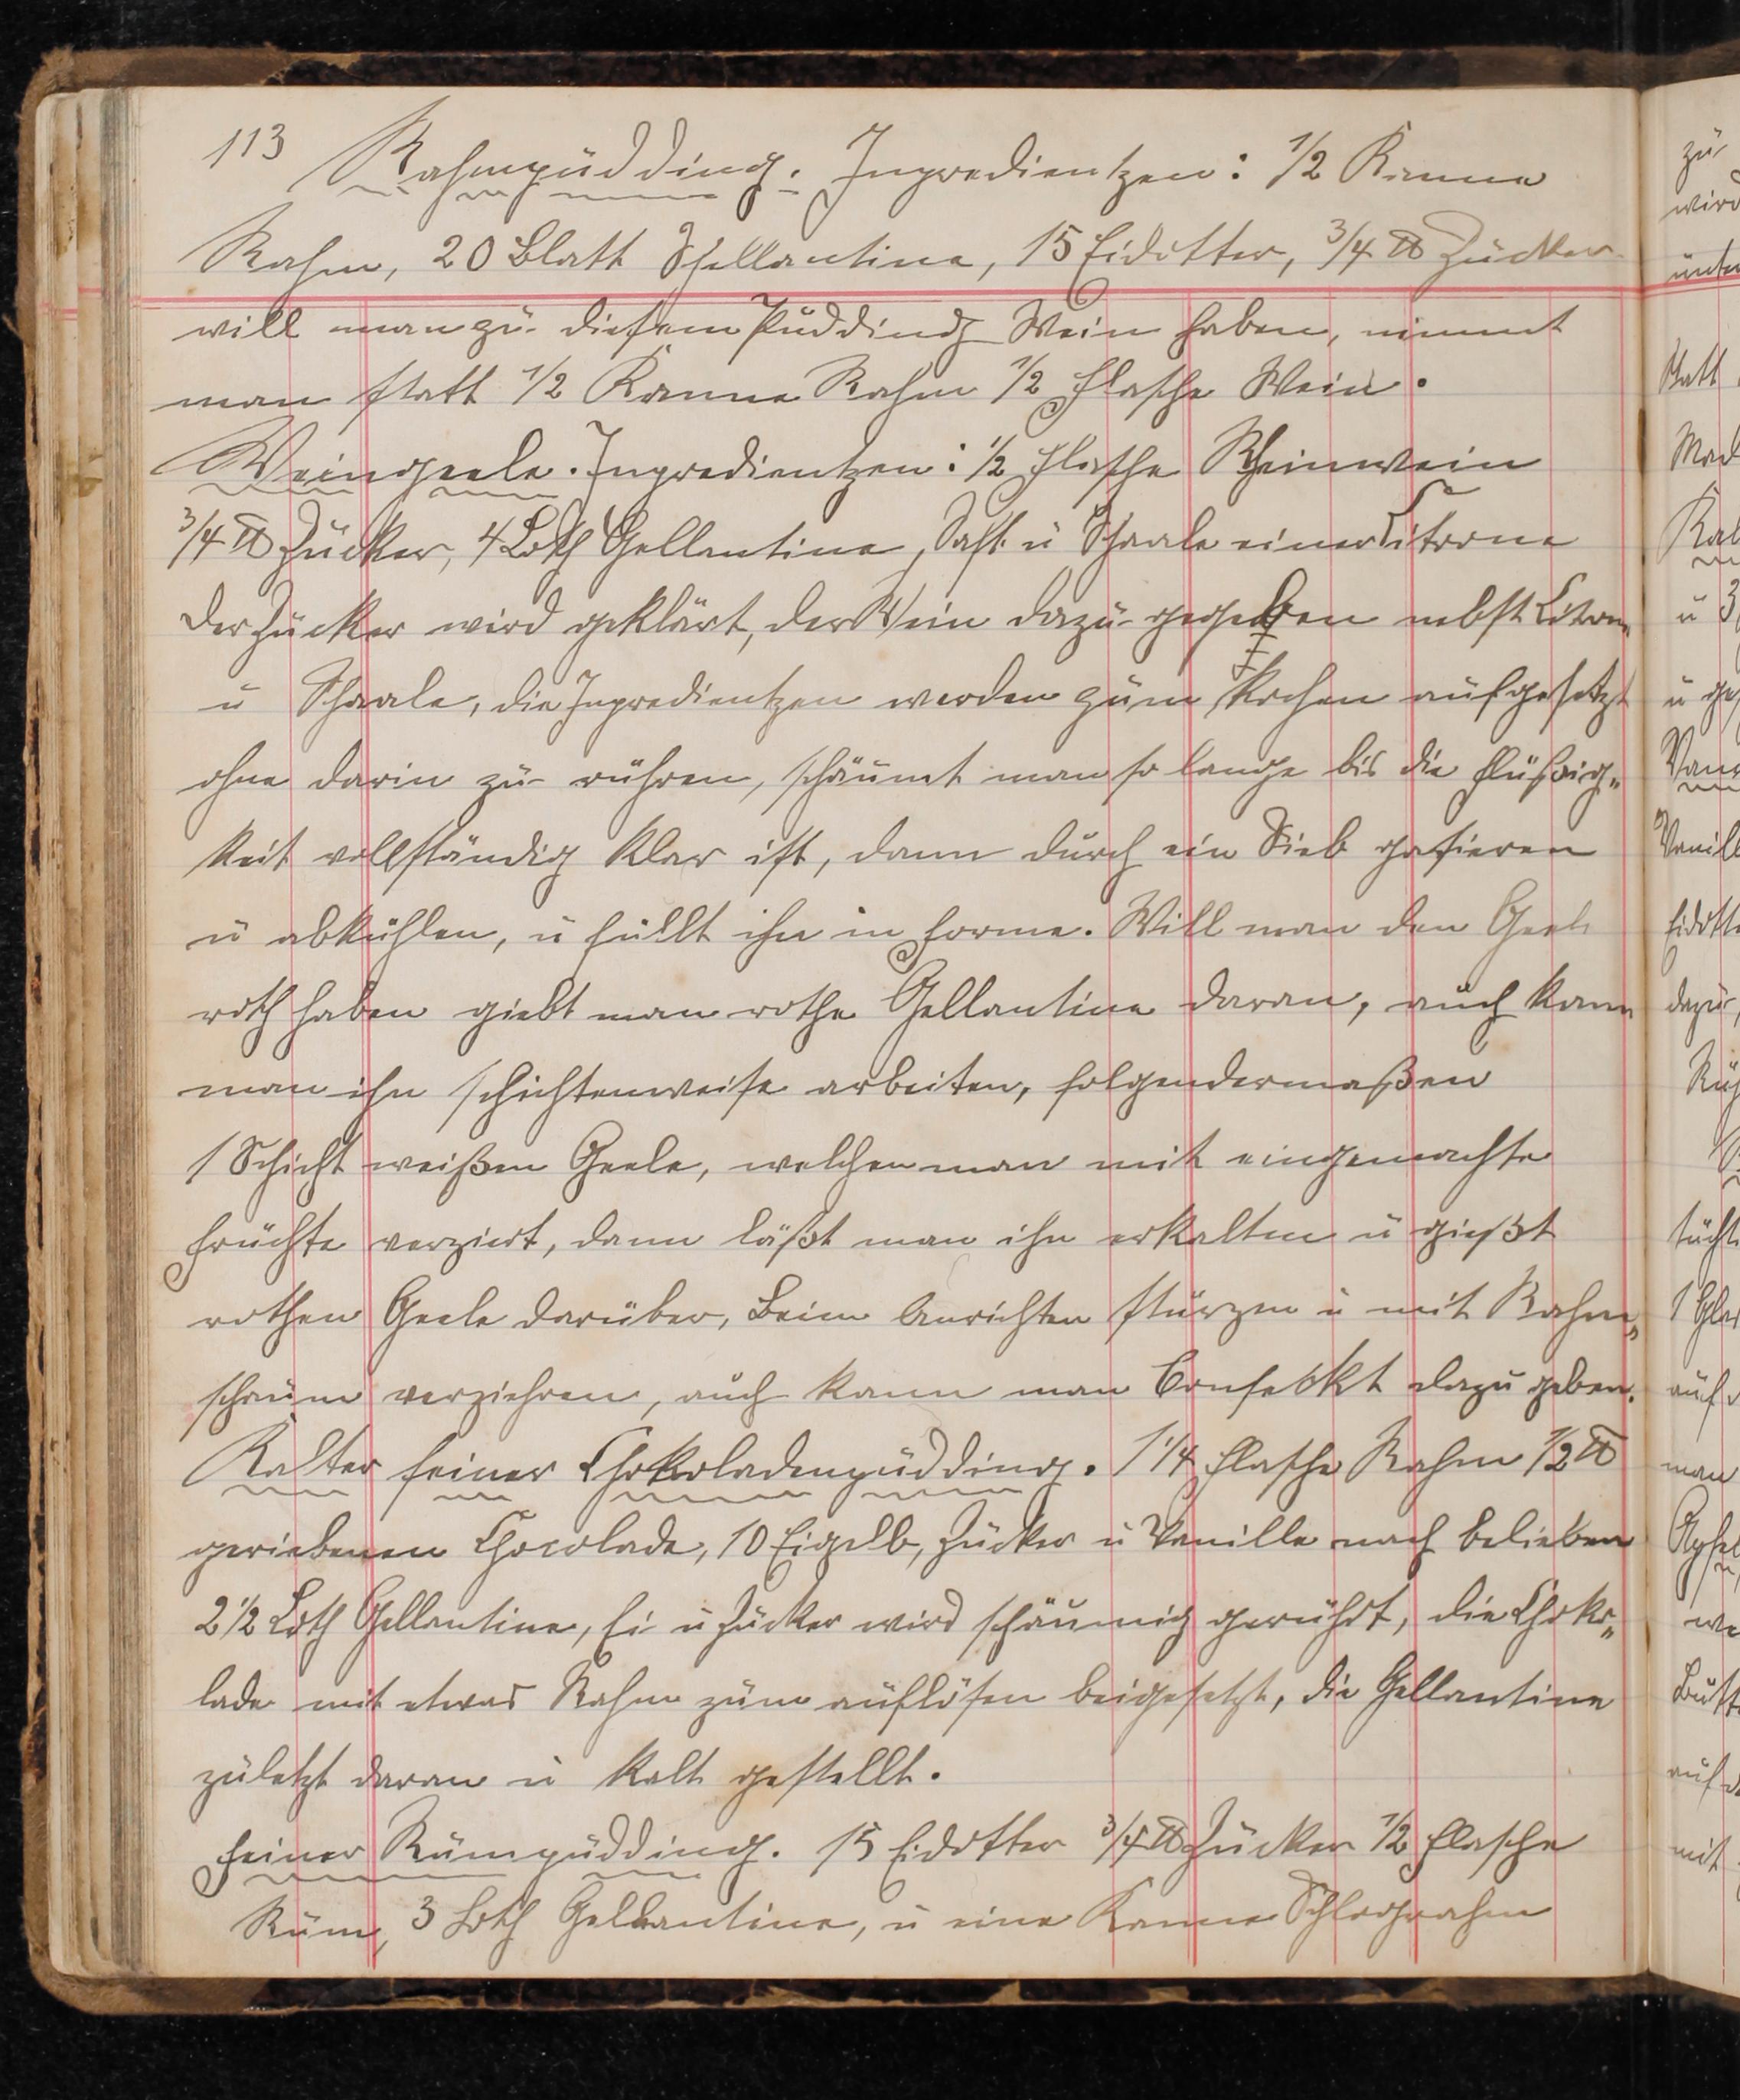 113 Rahmpudding. Ingredientzen: 1/2 Kanne
Rahm, 20 Blatt Schellantine, 15 Eidotter, 3/4 ℔ Zucker
will man zu diesem Pudding Wein haben, nimmt
man statt 1/2 Kanne Rahm 1/2 Flasche Wein.
Weingeele. Ingredientzen: 1/2 Flasche Rheinwein
3/4 ℔ Zucker, 4 Loth Gellantine, Saft u Schaale einer Citrone
der Zucker wird geklärt, der Wein dazu gegeben nebst Citron
u Schaale, die Ingredientzen werden zum kochen aufgesetzt
ohne darin zu rühren, schäumt man so lange bis die Flüßig„
keit vollständig klar ist, dann durch ein Sieb pasieren
u abkühlen, u füllt ihn in Forme. Will man den Geele
roth haben giebt man rothe Gellantine daran, auch kann
man ihn schichtenweise arbeiten, folgendermaßen
1 Schicht weißen Geele, welchen man mit eingemachte
Früchte verziert, dann läßt man ihn erkalten u gießt
rothen Geele darüber, Beim Anrichten stürzen u mit Rahm„
schaum verziehren, auch kann man Confeckt dazu geben.
Kalter feiner Chokoladenpudding. 1 1/4 Flasche Rahm 1/2 ℔
geriebenen Chocolade, 10 Eigelb, Zucker u Vanille nach belieben
2 1/2 Loth Gellantine, Ei u Zucker wird schäumig gerührt, die Choko„
lade mit etwas Rahm zum auflösen beigesetzt, die Gellantine
zuletzt daran u kalt gestellt.
Feiner Rumpudding. 15 Eidotter 3/4 ℔ Zucker 1/2 Flasche
Rum, 3 Loth Gellantine, u eine Kanne Schlagrahm